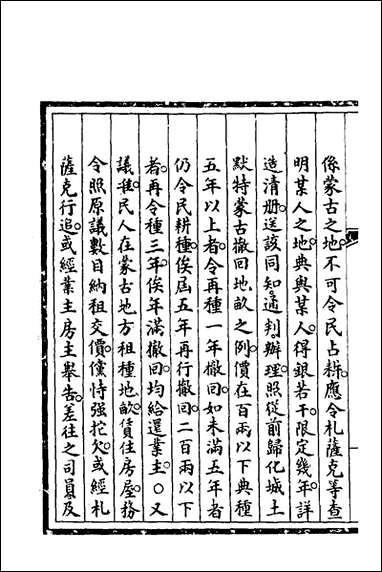 係蒙古之地不可令民占耕應令札薩克等查
明某人之地典與某人得銀若干限定幾年詳
造清册送該同知通判辦理照從前歸化城土
默特蒙古撤回地畝之例價在百兩以下典種
五年以上者令再種一年撤回如未滿五年者
仍令民耕種俟屆五年再行撤回二百兩以下
者再令種三年俟年滿撤回均給還業主○又
議準民人在蒙古地方租種地畝賃住房屋務
令照原議數目納租交價儻恃强拖欠或經札
薩克行追或經業主房主舉吿差往之司員及